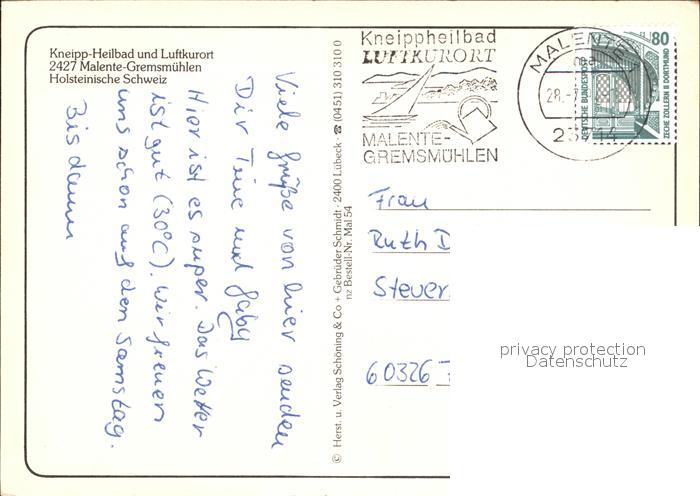 Kneipp-Heilbad und Luftkurort
2427 Malente-Gremsmühlen
Holsteinische Schweiz
Viele Grüße von hier senden
Dir Tine und Gaby
Hier ist es super. Das Wetter
ist gut (30°C). Wir freuen
uns schon auf den Samstag.
Bis dann
© Herst. u. Verlag Schöning & Co + Gebrüder Schmidt · 2400 Lübeck · ☎ (0451) 310 310 0
nz Bestell-Nr. Mal 54
Kneippheilbad
LUFTKURORT
MALENTE-
GREMSMÜHLEN
MALENTE
28.-7
23714
80
DEUTSCHE BUNDESPOST
ZECHE ZOLLERN II DORTMUND
Frau
Ruth D
Steuer
60326
privacy protection
Datenschutz